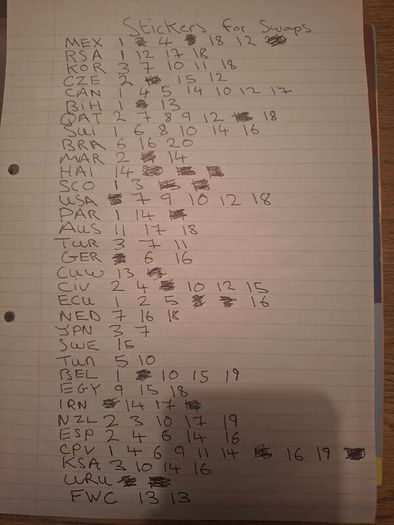 Stickers for Swaps
MEX 1 4 18 12
RSA 1 12 17 18
KOR 3 7 10 11 18
CZE 2 15 12
CAN 1 4 5 14 10 12 17
BIH 1 13
QAT 2 7 8 9 12 18
SUI 1 6 8 10 14 16
BRA 6 16 20
MAR 2 14
HAI 14
SCO 1 3
USA 7 9 10 12 18
PAR 1 14
AUS 11 17 18
TUR 3 7 11
GER 6 16
CUW 13
CIV 2 4 10 12 15
ECU 1 2 5 16
NED 7 16 18
JPN 3 7
SWE 15
TUN 5 10
BEL 1 10 15 19
EGY 9 15 18
IRN 14 17
NZL 2 3 10 17 19
ESP 2 4 6 14 16
CPV 1 4 6 9 11 14 16 19
KSA 3 10 14 16
URU
FWC 13 13